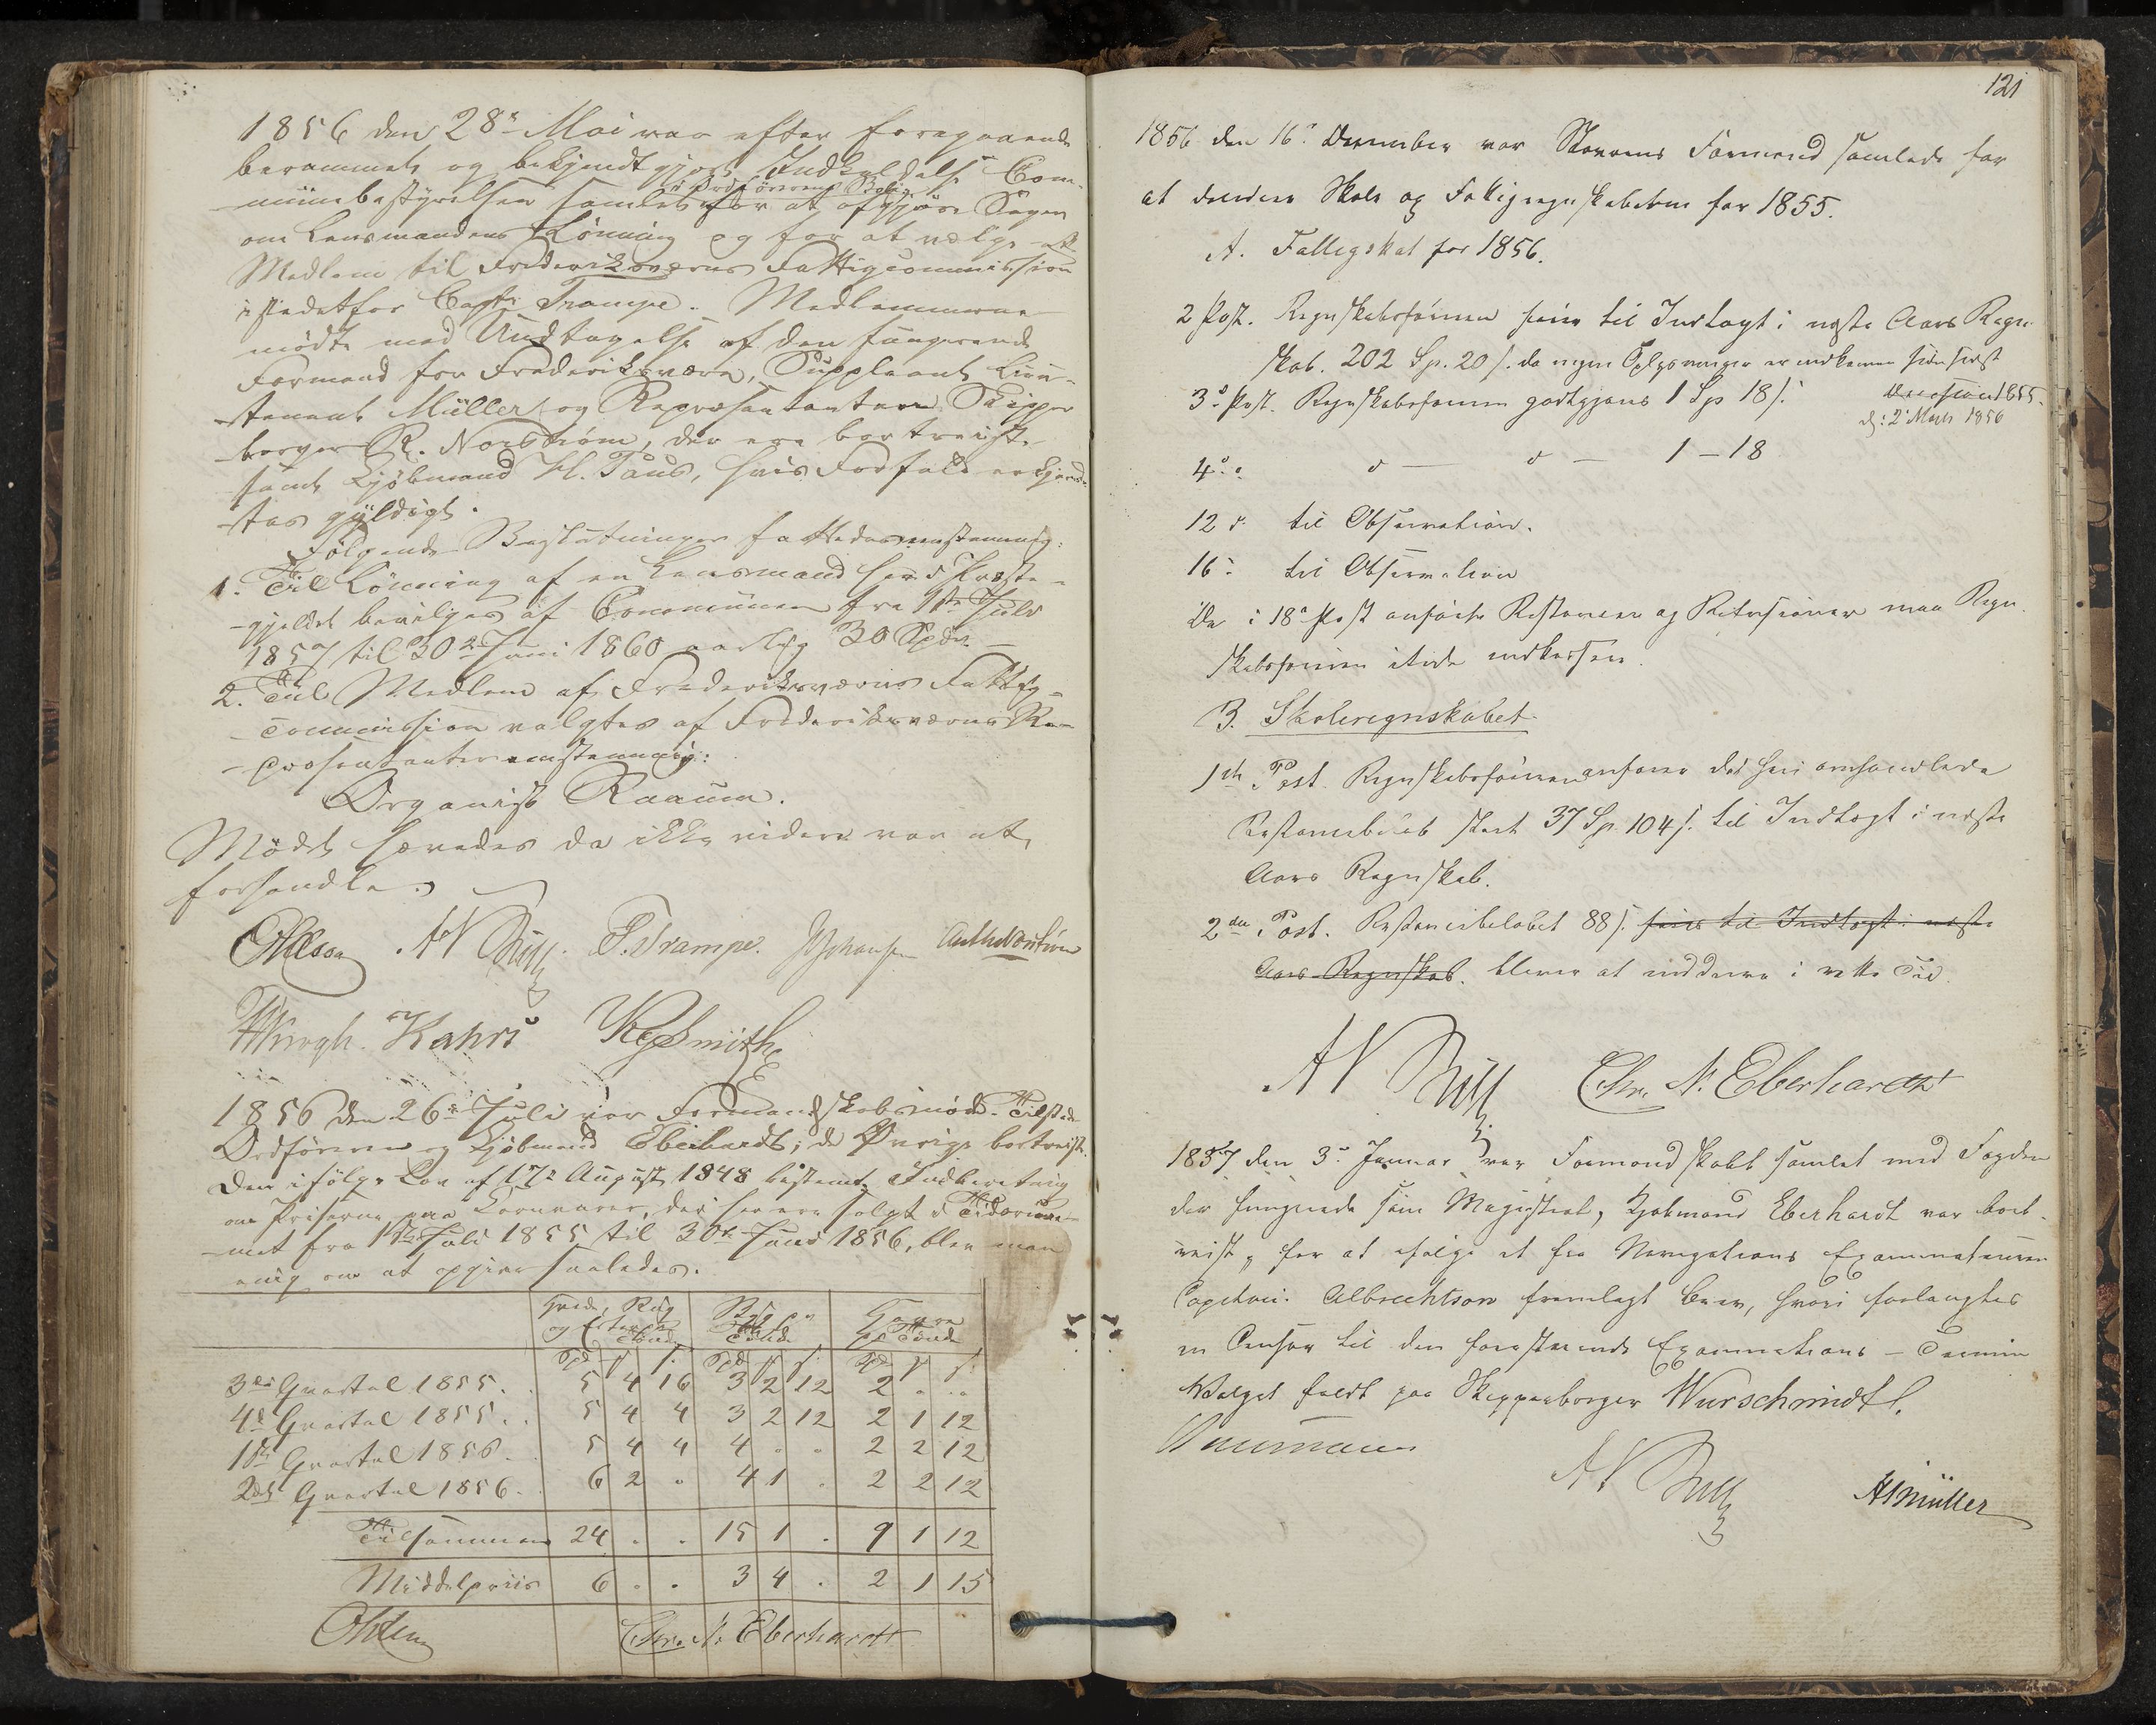 1856 den 28de Mai var efter foregaaende
berammet og bekjendtgjort Indkaldelse Com-
munebestyrelsen samlet i Ordførerens Bolig for at afgjøre Sagen
om Lensmandens Lønning og for at vælge et
Medlem til Frederiksværns Fattigcommission
istedetfor Capt. Trampe. Medlemmerne
mødte med Undtagelse af den fungerende
Formand for Frederiksværn, Suppleant Lieu-
tenant Müller og Repræsentanterne Skipper
borger R. Norstrøm, der ere bortreiste
samt Kjøbmand H. Paus, hvis Forfald erkjend-
tes gyldigt.
Følgende Beslutninger fattedes eenstemmig:
1. Til Lønning af en Lensmand her i Præste-
gjeldet bevilges af Communen fra 1ste Juli
1857 til 30te Juni 1860 aarlig 30 Spdr.
2. Til Medlem af Frederiksværns Fattig-
commission valgtes af Frederiksværns Re-
præsentanter eenstemmig:
Organist Raaum.
Mødet hævedes da ikke videre var at
forhandle.
P. Trampe. Johansen
Krogh. Kahrs Smith
1856 den 26de Juli var Formandskabsmøde. Tilstede
Ordføreren og Kjøbmand Eberhardt; de Øvrige bortreist.
Den ifølge Lov af 17de August 1848 bestemte Indberetning
om Priserne paa Kornvarer, der her ere solgt i Tidsrum-
met fra 1ste Juli 1855 til 30te Juni 1856, blev man
enig om at opgive saaledes.
Hvede, Rug og Erter pr Tønde Byg pr Tønde Havre pr Tønde
Spd ß Spd ß Spd ß
3die Qvartal 1855. 5 4 16 3 2 12 2 . ..
4de Qvartal 1855. 5 4 4 3 2 12 2 1 12
1ste Qvartal 1856. 5 4 4 4 . . 2 2 12
2det Qvartal 1856. 6 2 . 4 1 . 2 2 12
Tilsammen 24 . . 15 1 . 9 1 12
Middelpriis 6 . . 3 4 . 2 1 15
Chr. N. Eberhardt
121
1856 den 16de December var Staverns Formænd samlede for
at decidere Skole og Fattigregnskaberne for 1855.
A. Fattigskat for 1856.
2 Post. Regnskabsføreren fører til Indtægt i næste Aars Regn-
skab. 202 Sp. 20 ß. da ingen Oplysninger er indkomne siden sidst
Decision 1855.
d: 2 Marts 1856
3die Post. Regnskabsføreren godtgjøres 1 Sp 18 ß.
4de " " — " — 1 – 18
12 " til Observation.
16 " til Observation
De i 18de Post anførte Restancer og Refusioner maa Regn-
skabsføreren itide indkassere.
B. Skoleregnskabet
1ste Post. Regnskabsføreren anfører det heri omhandlede
Restancebeløb stort 37 Sp. 104 ß. til Indtægt i næste
Aars Regnskab.
2den Post. Restancebeløbet 88 ß. føres til Indtægt i næste
Aars Regnskab. bliver at inddrive i rette Tid.
Chr. N. Eberhardt
1857 den 3die Januar var Formandskabet samlet med Fogden
der fungerede som Magistrat, Kjøbmand Eberhardt var bort-
reist, for at ifølge et fra Navigations Examinateuren
Capitain Albrechtson fremlagt Brev, hvori forlangtes
en Censor til den forestaaende Examinations – Termin
Valget faldt paa Skipperborger Wurschmidt.
Müller